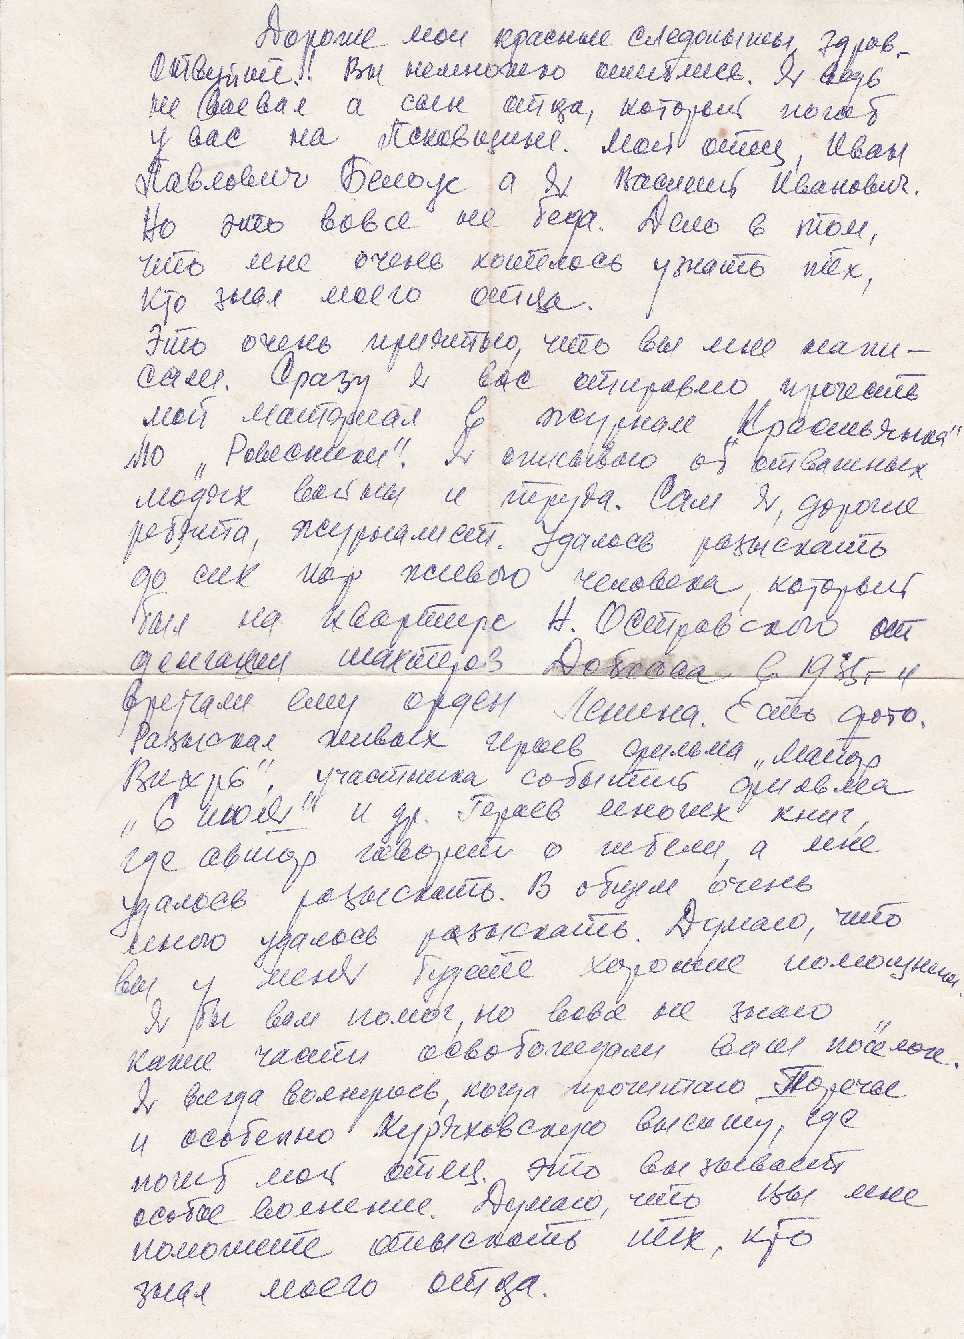 Дорогие мои красные следопыты, здрав-
ствуйте! Вы немножко ошиблись. Я ведь
не воевал а сын отца, который погиб
у вас на Псковщине. Мой отец, Иван
Павлович Белоус а я Василий Иванович.
Но это вовсе не беда. Дело в том,
что мне очень хотелось узнать тех,
кто знал моего отца.
Это очень приятно, что вы мне напи-
сали. Сразу я вас отправлю прочесть
мой материал в журнал „Крестьянка"
по „Ровесники". Я описываю об отважных
людях войны и труда. Сам я, дорогие
ребята, журналист. Удалось разыскать
до сих пор живого человека, который
был на квартире Н. Островского от
делегации шахтёров Донбасса в 1935г и
вручали ему орден Ленина. Есть фото.
Разыскал живых героев фильма „Майор
Вихрь", участника событий фильма
„6 июля" и др. Героев многих книг,
где автор говорит о гибели, а мне
удалось разыскать. В общем очень
много удалось разыскать. Думаю, что
вы у меня будете хорошие помощники.
Я бы вам помог, но вовсе не знаю
какие части освобождали ваш посёлок.
Я всегда волнуюсь, когда прочитаю Поречье
и особенно Куряховскую высоту, где
погиб мой отец. Это вызывает
особое волнение. Думаю, что вы мне
поможете отыскать тех, кто
знал моего отца.